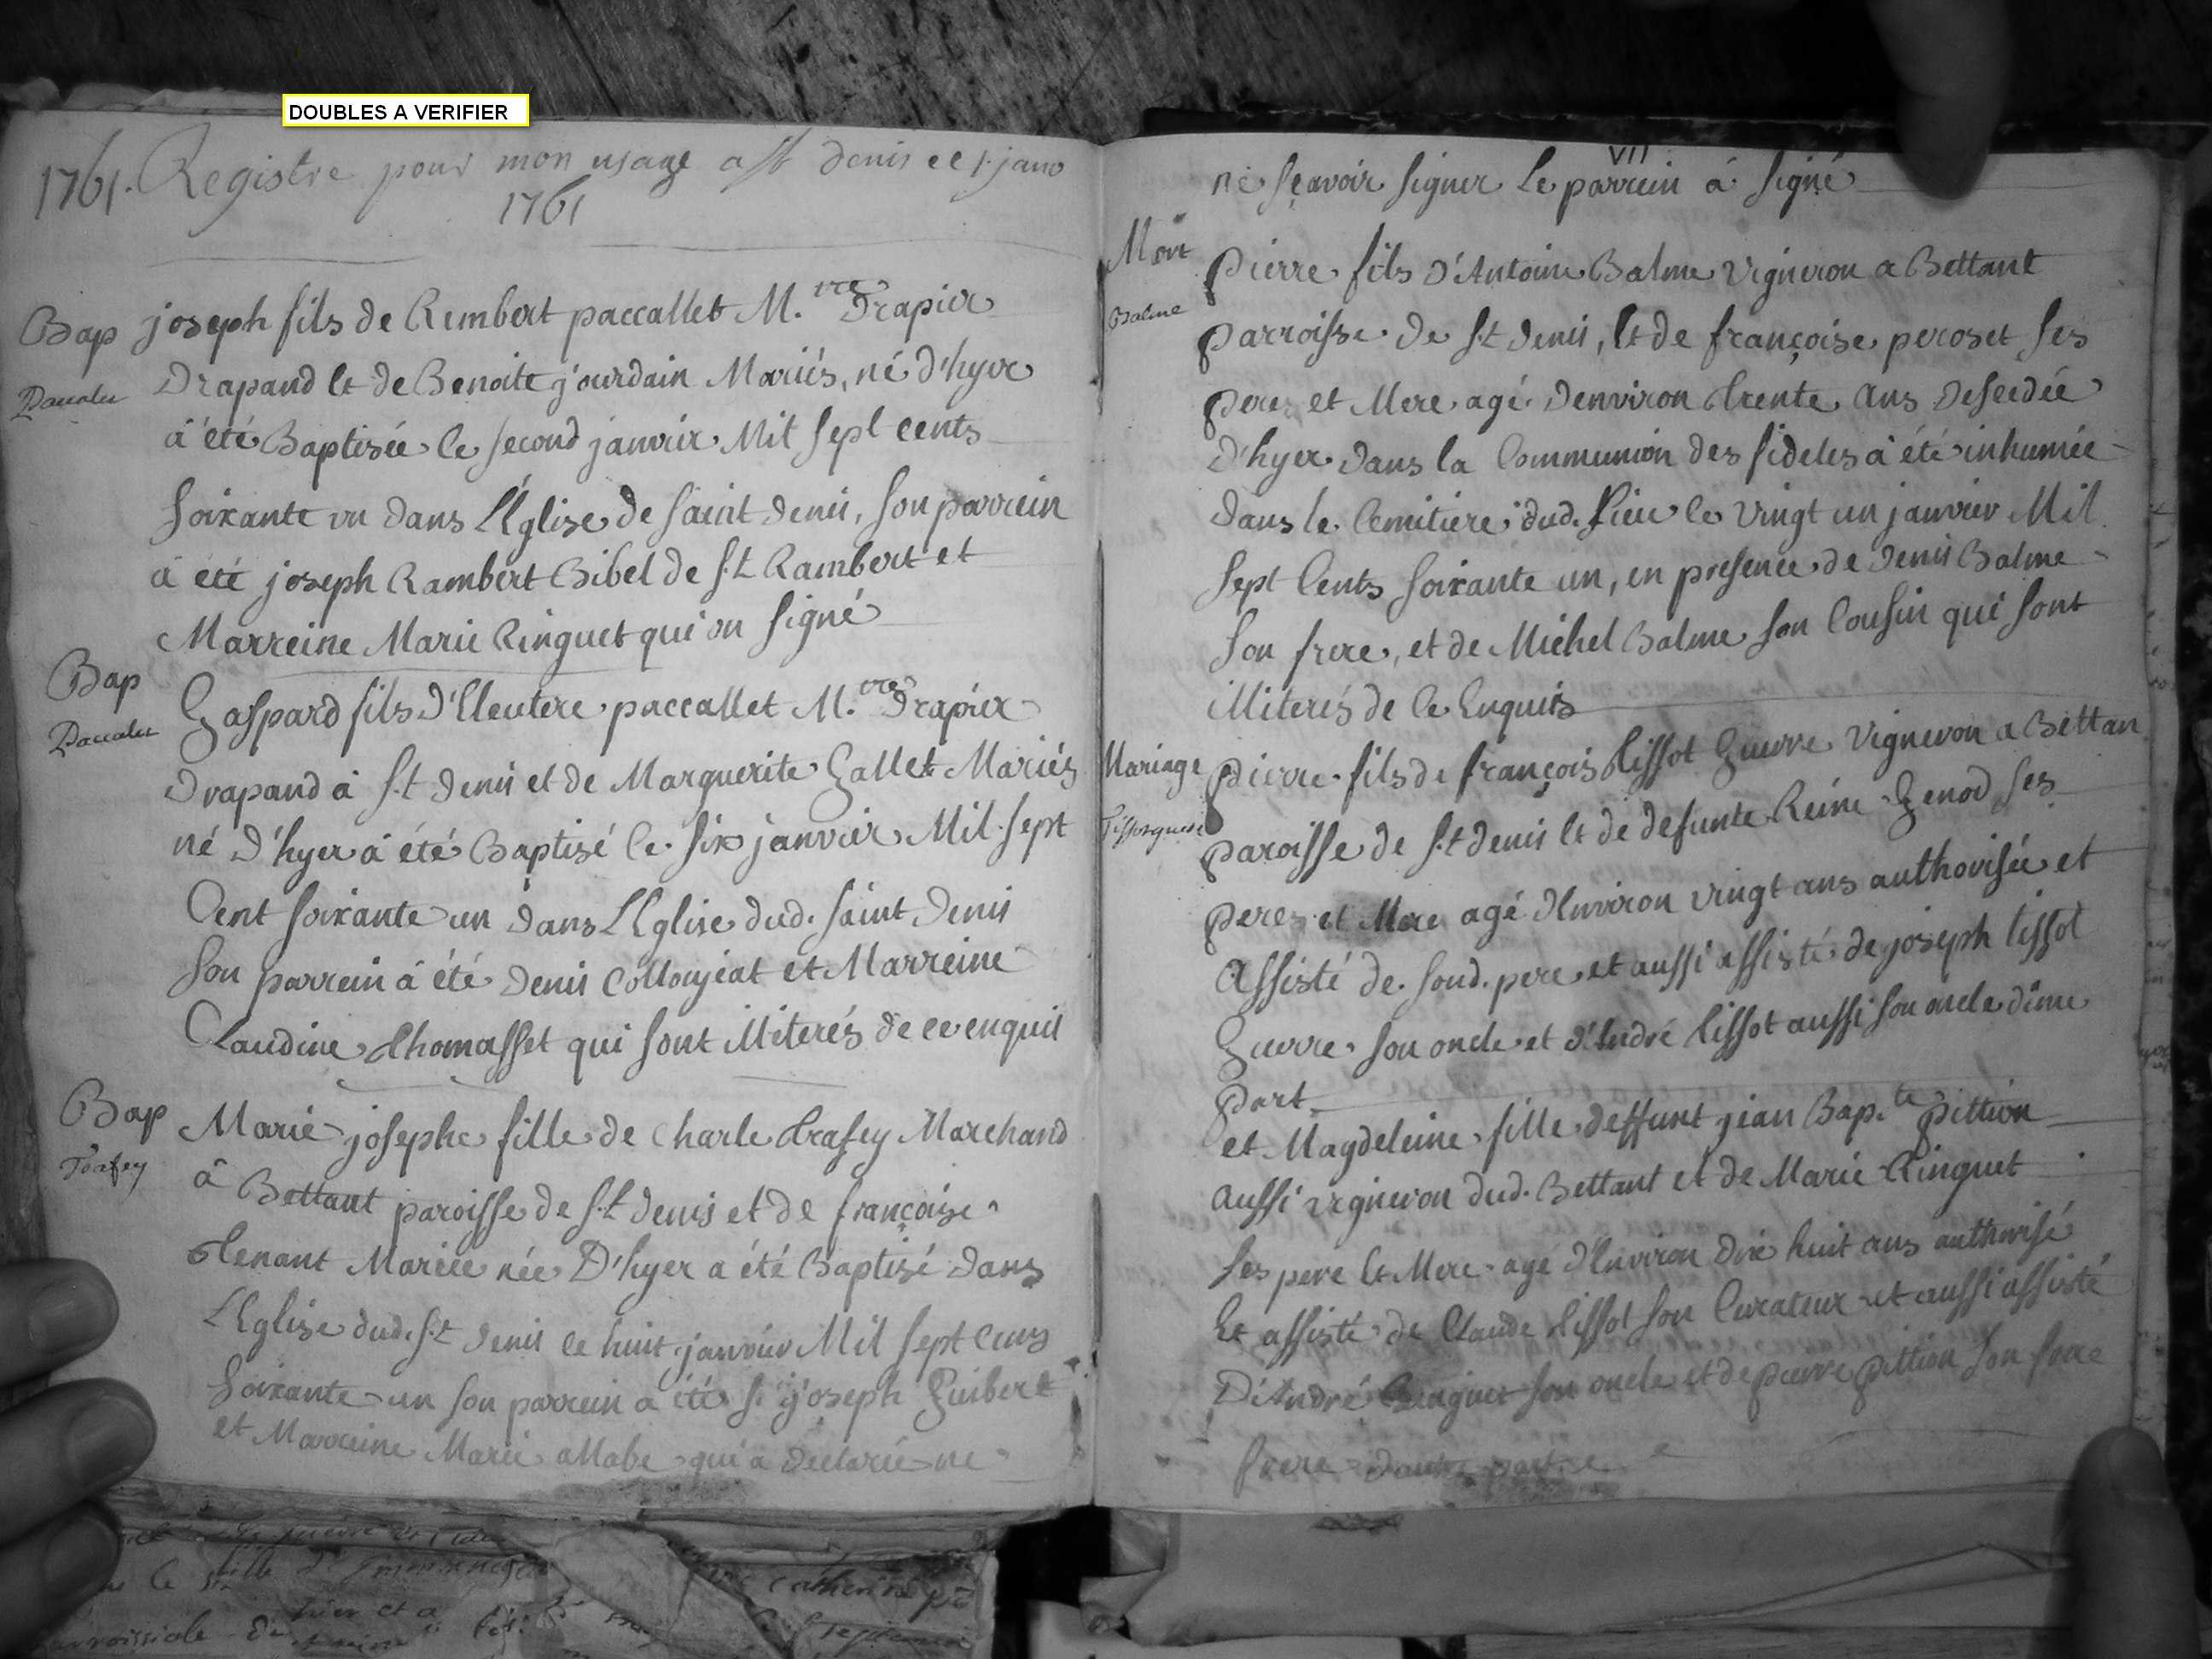 DOUBLES A VERIFIER
1761. Registre pour mon usage a St denis ce 1. janv
1761
Bap
joseph fils de Rembert paccallet M.tre Drapier
Drapand et de Benoite jourdain Mariés, né d'hyer
Paccalet
à été Baptisée le second janvier Mil sept cents
soixante un dans L'Eglise de saint denis, son parrein
à été joseph Rambert Bibel de s.t Rambert et
Marreine Marie Ringuet qui on signé
Bap
Gaspard fils d'Eleutere paccallet M.tre Drapier
Paccalet
Drapand à s.t denis et de Marguerite Gallet Mariés
né d'hyer à été Baptisé le six janvier Mil sept
Cent soixante un dans L'Eglise dud. saint Denis
son parrein à été denis Collonjeat et Marreine
Claudine thomasset qui sont illiterés de ce enquis
Bap
Marie josephe fille de Charle trafey Marchand
Trafey
à Bettant paroisse de s.t denis et de françoise
tenant Mariée née D'hyer a été Baptisé dans
L'Eglise dud. s.t denis le huit janvier Mil sept cens
soixante un son parrein a été s. joseph Guibert
et Marreine Marie allabe qui a declarié ne
VII
ne sçavoir signer le parrein à signé
Mort
Pierre fils d'Antoine Balme vigneron a Bettant
Balme
parroisse de s.t denis, et de françoise peroset ses
peres et Mere agé denviron trente ans desedée
d'hyer dans la Communion des fideles à été inhumée
dans le Cemitiere dud. Lieu le vingt un janvier Mil
sept Cents soixante un, en presence de denis Balme
son frere, et de Michel Balme son Cousin qui sont
illiterés de Ce Enquis
Mariage
pierre fils de françois tissot Guerre vigneron a Bettan
paroisse de s.t denis et de defunte Reine Genod ses
peres et Mere agé d'Environ vingt ans authorisée et
Assisté de sond. pere et aussi assisté de joseph tissot
Guerre son oncle et d'André tissot aussi son oncle dime
part
et Magdeleine fille deffunt jean Bap.te pittion
aussi vigneron dud. Bettant et de Marie Ringuet
ses pere et Mere agé d'Environ dix huit ans authorisé
Et assisté de Claude tissot son Curateur et aussi assisté
D'André Ringuet son oncle et de pierre pittion son frere
frere dautre part